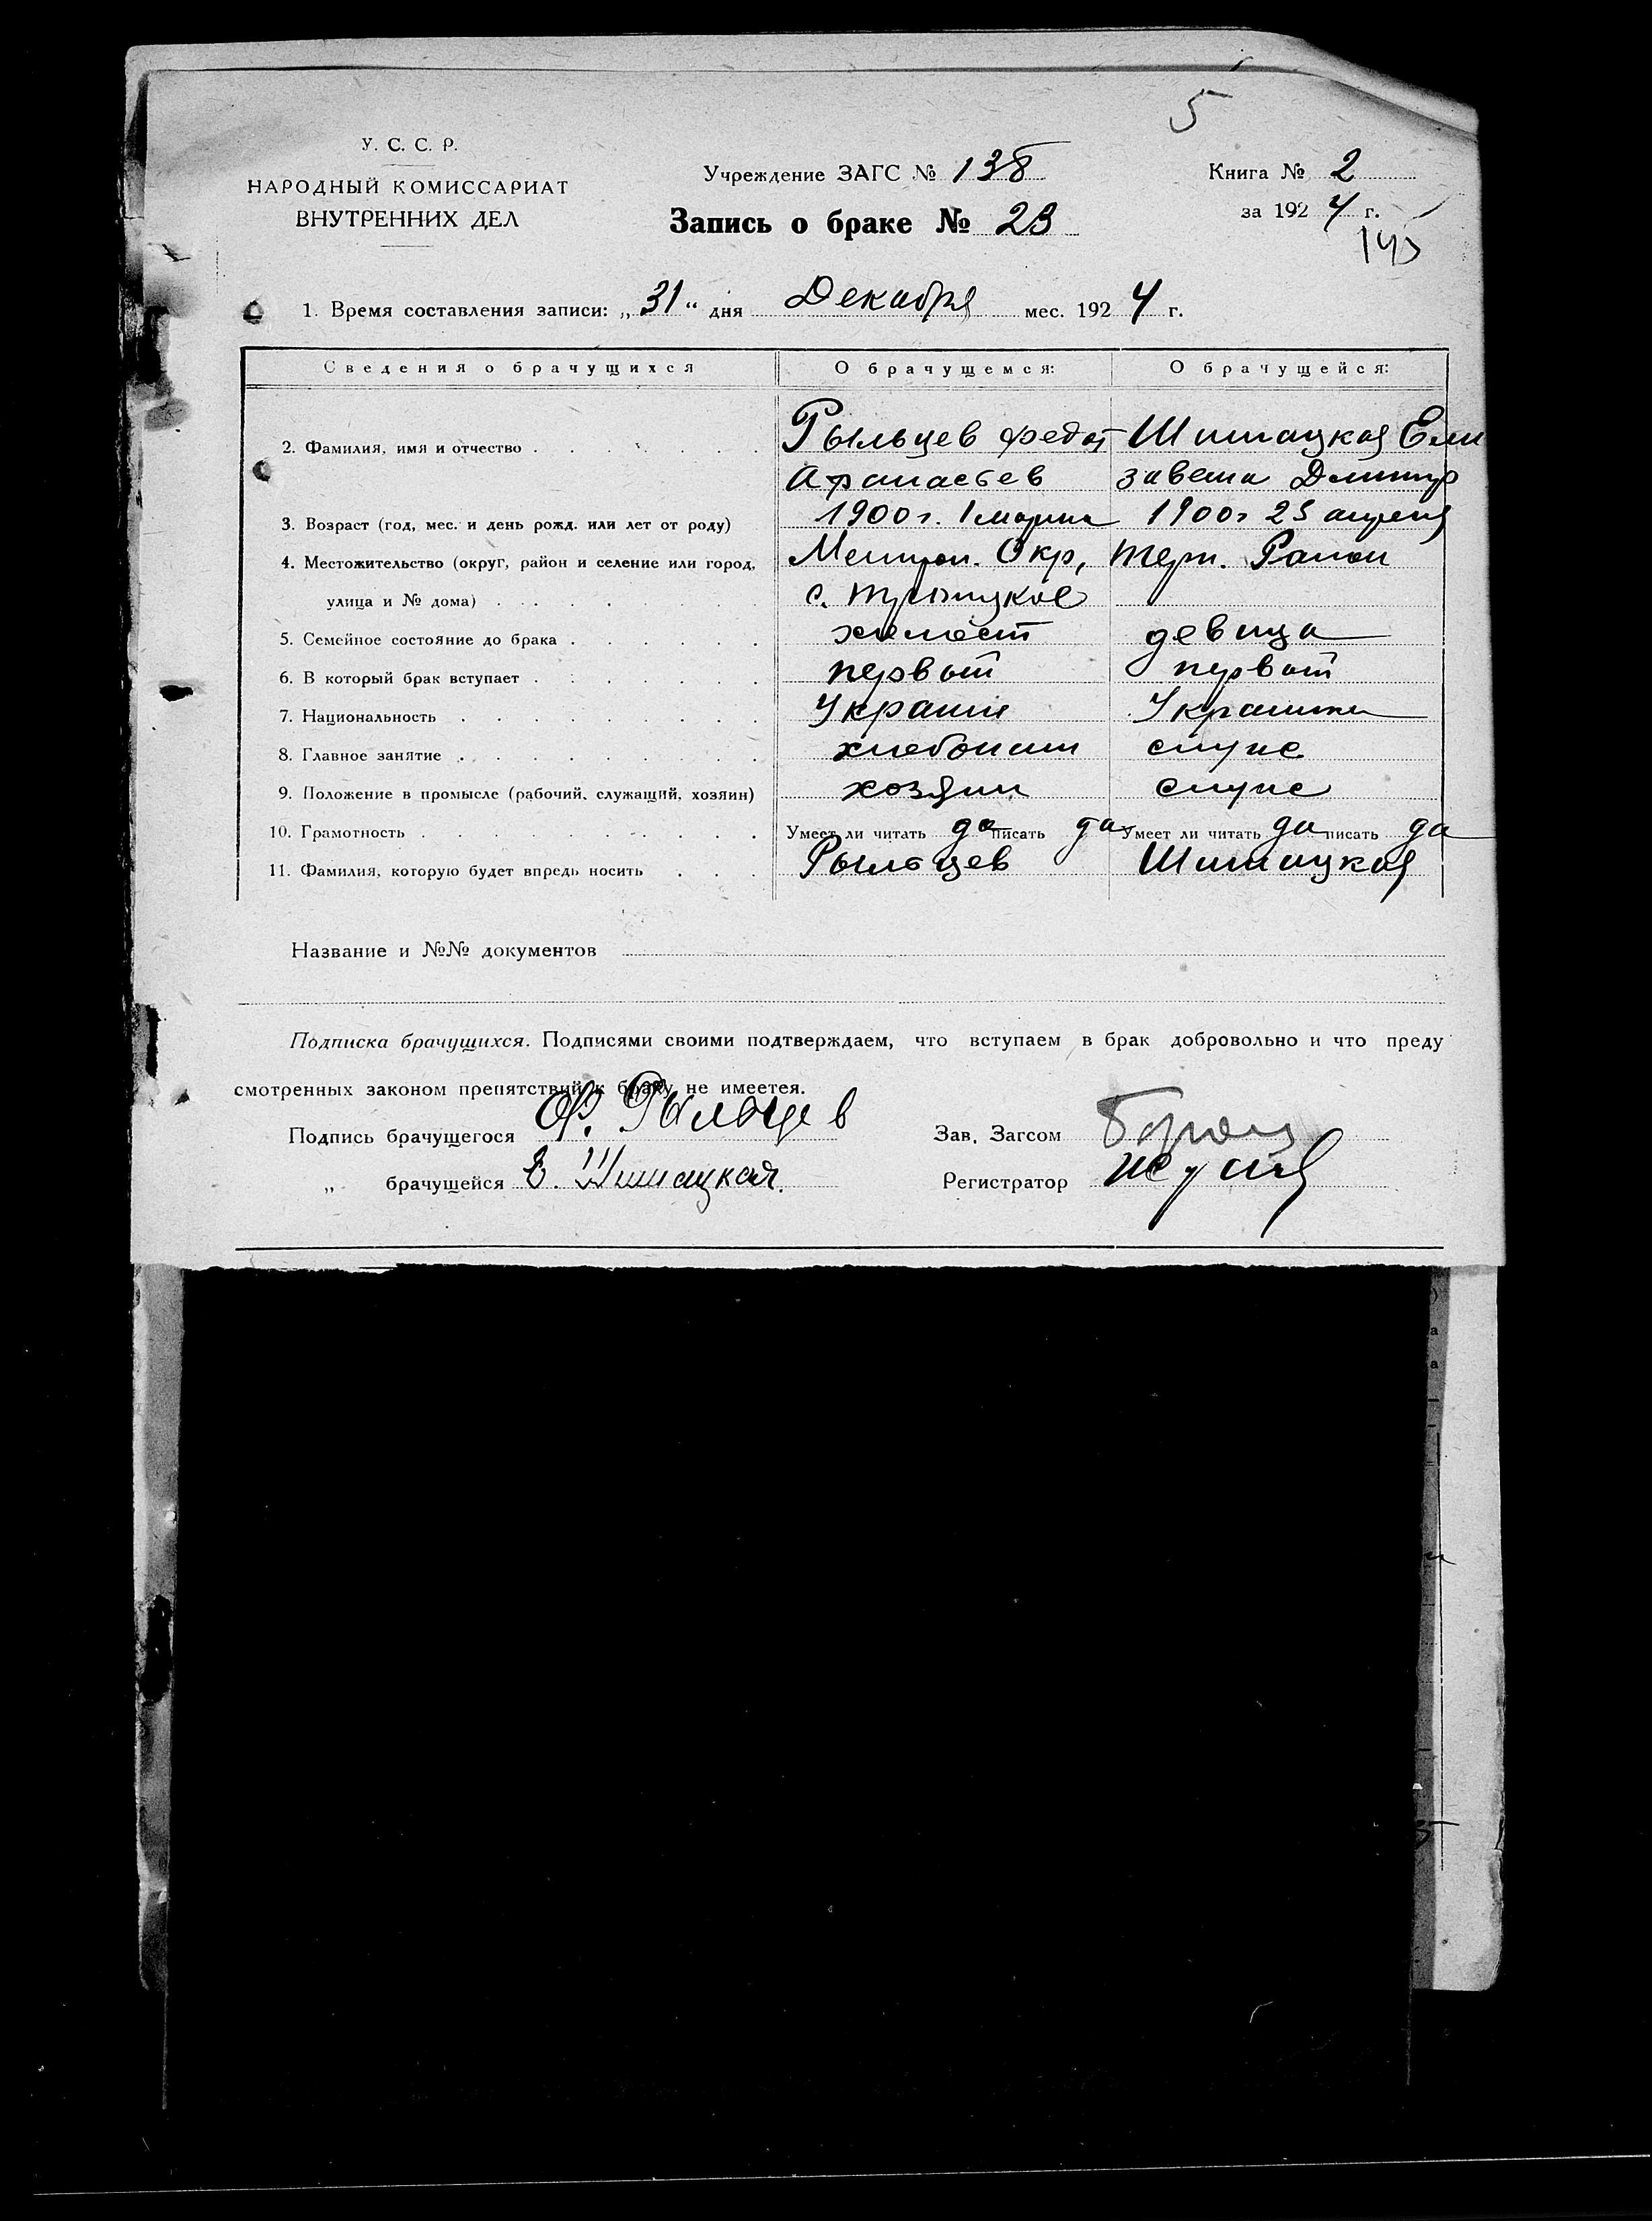 5
У. С. С. Р.
НАРОДНЫЙ КОМИССАРИАТ
ВНУТРЕННИХ ДЕЛ
Учреждение ЗАГС № 138
Запись о браке № 23
Книга № 2
за 1924 г.
1. Время составления записи: „31“ дня Декабря мес. 1924 г.
Сведения о брачущихся О брачущемся: О брачущейся:
2. Фамилия, имя и отчество Рыльцев Федот Шишацкая Ели
Афанасьев завета Дмитр
3. Возраст (год, мес. и день рожд. или лет от роду) 1900 г. 1 марта 1900 г 23 апреля
4. Местожительство (округ, район и селение или город, Мелитоп. Окр, Терп. Район
улица и № дома) с.
5. Семейное состояние до брака холост девица
6. В который брак вступает первый первый
7. Национальность Украин Украинка
8. Главное занятие хлебопаш служ
9. Положение в промысле (рабочий, служащий, хозяин) хозяин служ
10. Грамотность Умеет ли читать да писать да Умеет ли читать да писать да
11. Фамилия, которую будет впредь носить Рыльцев Шишацкая
Название и №№ документов
Подписка брачущихся. Подписями своими подтверждаем, что вступаем в брак добровольно и что преду
смотренных законом препятствий к браку не имеетея.
Подпись брачущегося Ф. Рыльцев
Зав. Загсом
„ брачущейся Е. Шишацкая.
Регистратор